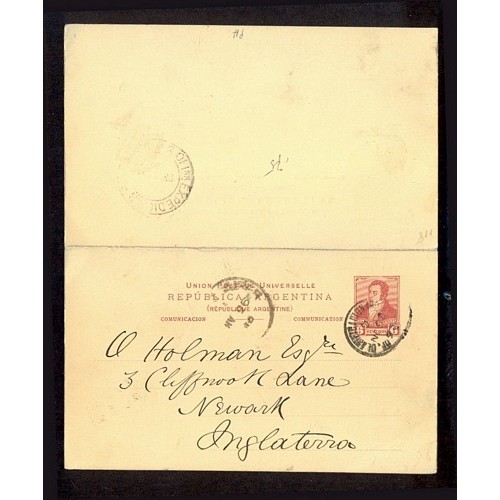 UNION POSTALE UNIVERSELLE
REPÚBLICA ARGENTINA
(RÉPUBLIQUE ARGENTINE)
COMUNICACION COMUNICACION
O Holman Esqre
3 Cliffnook Lane
Newark
Inglaterra